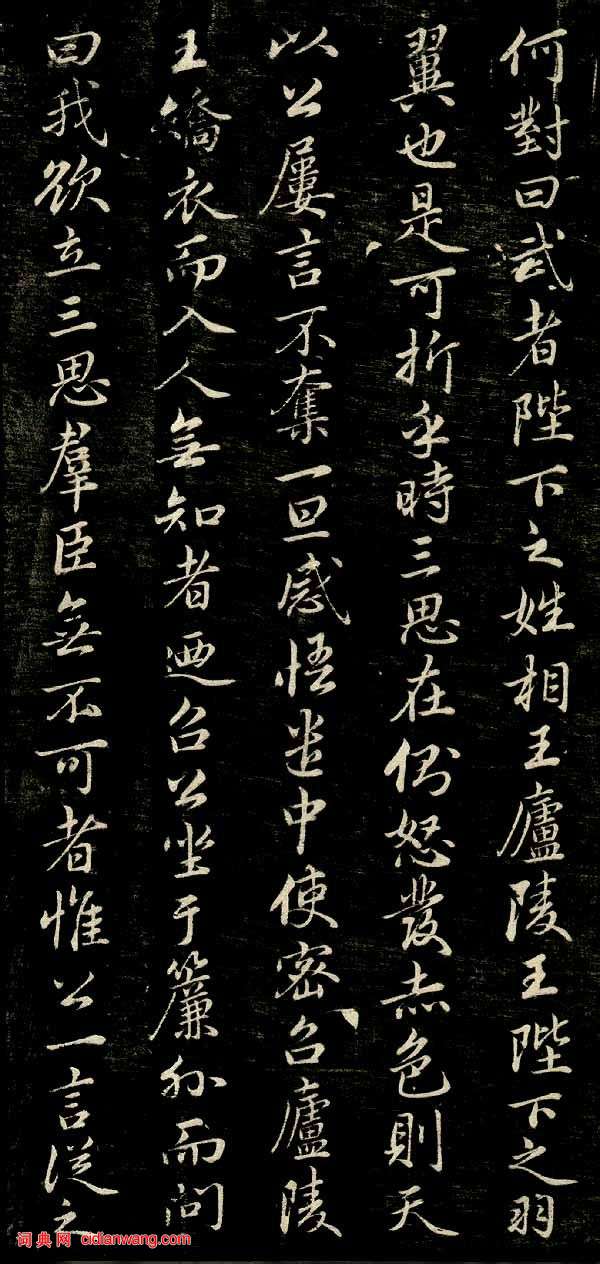 何對曰武者陛下之姓相王廬陵王陛下之羽
翼也是可折乎時三思在側怒發赤色則天
以公屢言不奪一旦感悟遣中使密召廬陵
王矯衣而入人無知者乃召公坐于簾外而問
曰我欲立三思羣臣無不可者惟公一言從之
词典网 cidianwang.com